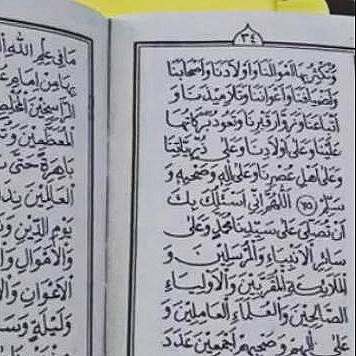 ٣٤
وَتُكَثِّرَ بِهَا أَمْوَالَنَا وَأَوْلَادَنَا وَأَصْحَابَنَا
وَأَضْيَافَنَا وَأَعْوَانَنَا وَتَلَامِيذَنَا وَ
أَتْبَاعَنَا وَزُوَّارَ قَبْرِنَا وَتَعُودُ بَرَكَاتُهَا
عَلَيْنَا وَعَلَى أَوْلَادِنَا وَعَلَى ذُرِّيَّاتِنَا
وَعَلَى أَهْلِ عَصْرِنَا وَعَلَى آلِهِ وَصَحْبِهِ وَ
سَلِّمْ اَللّٰهُمَّ إِنِّي أَسْئَلُكَ بِكَ
أَنْ تُصَلِّيَ عَلَى سَيِّدِنَا مُحَمَّدٍ وَعَلَى
سَائِرِ الْأَنْبِيَاءِ وَالْمُرْسَلِينَ وَ
الْمَلَائِكَةِ الْمُقَرَّبِينَ وَالْأَوْلِيَاءِ
الصَّالِحِينَ وَالْعُلَمَاءِ الْعَامِلِينَ وَ
عَلَى آلِهِمْ وَصَحْبِهِمْ أَجْمَعِينَ عَدَدَ
مَا فِي عِلْمِ اللهِ
بِهَا مِنْ إِمَامِ
الرَّاسِخِينَ
الْمُعَظَّمِينَ
بَاهِرَةً حَتَّى
الْعَالَمِينَ
يَوْمِ الدِّينِ
وَالْأَهْوَالِ
الْأَعْوَانِ
وَلَيْلَةٍ